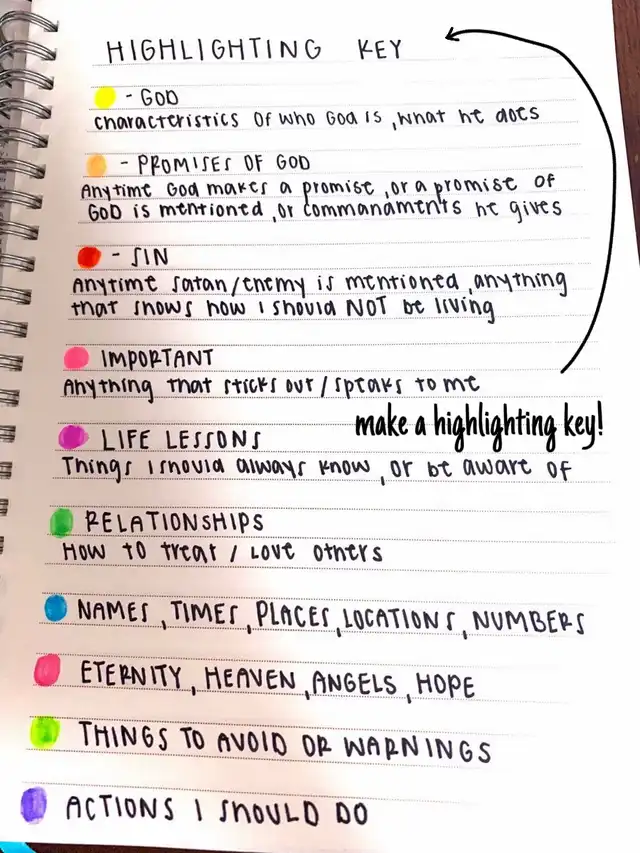 HIGHLIGHTING KEY
- GOD
characteristics of who God is, what he does
- PROMISES OF GOD
Anytime God makes a promise, or a promise of
GOD is mentioned, or commandments he gives
- SIN
Anytime satan/enemy is mentioned, anything
that shows how I should NOT be living
IMPORTANT
Anything that sticks out / speaks to me
make a highlighting key!
LIFE LESSONS
Things I should always know, or be aware of
RELATIONSHIPS
How to treat / love others
NAMES, TIMES, PLACES, LOCATIONS, NUMBERS
ETERNITY, HEAVEN, ANGELS, HOPE
THINGS TO AVOID OR WARNINGS
ACTIONS I SHOULD DO